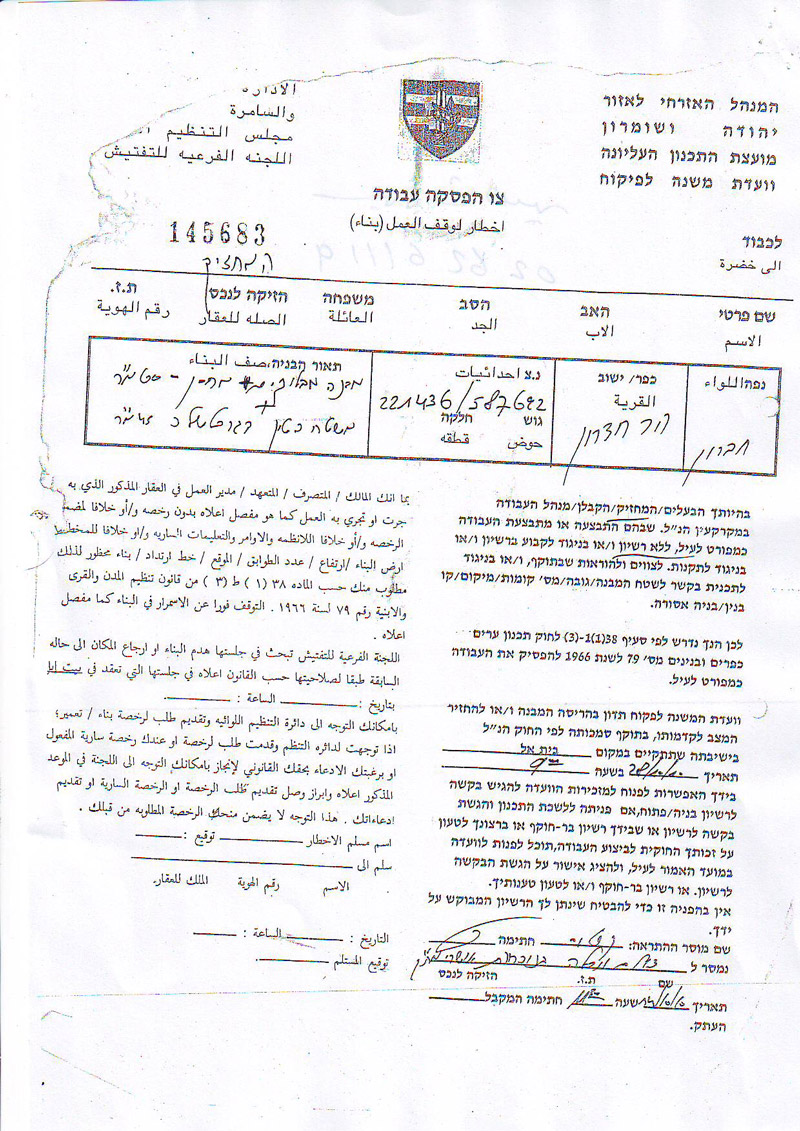 המנהל האזרחי לאזור
יהודה ושומרון
מועצת התכנון העליונה
וועדת משנה לפיקוח
الادارة
والسامرة
مجلس التنظيم
اللجنه الفرعيه للتفتيش
צו הפסקה עבודה
اخطار لوقف العمل (بناء)
145683
המחזיק
לכבוד
الى خضرة
שם פרטי האב הסב משפחה הזיקה לנכס ת.ז.
الاسم الاب الجد العائلة الصله للعقار رقم الهوية
נפה/اللواء
חברון
כפר/ ישוב
القرية
נ.צ احداثيات
221436/587692
גוש חלקה
حوض قطقه
תאור הבניה,صف البناء
בהיותך הבעלים/המחזיק/הקבלן/מנהל העבודה
במקרקעין הנ"ל. שבהם התבצעה או מתבצעת העבודה
כמפורט לעיל, ללא רשיון ו/או בניגוד לקבוע ברשיון ו/או
בניגוד לתקנות. לצווים ולהוראות שבתוקף, ו/או בניגוד
לתכנית בקשר לשטח המבנה/גובה/מס' קומות/מיקום/קו
בנין/בניה אסורה.
לכן הנך נדרש לפי סעיף 38(1)-(3) לחוק תכנון ערים
כפרים ובנינים מס' 79 לשנת 1966 להפסיק את העבודה
כמפורט לעיל.
וועדת המשנה לפקוח תדון בהריסה המבנה ו/או להחזיר
המצב לקדמותו, בתוקף סמכותה לפי החוק הנ"ל
בישיבתה שתתקיים במקום בית אל
תאריך בשעה
בידך האפשרות לפנוח למזכירות הוועדה להגיש בקשה
לרשיון בניה/פתוח,אם פניתה ללשכת התכנון והגשת
בקשה לרשיון או שבידך רשיון בר-חוקף או ברצונך לטעון
על זכותך החוקית לביצוע העבודה,תוכל לפנות לוועדה
במועד האמור לעיל, ולהציג אישור על הגשת הבקשה
לרשיון. או רשיון בר-חוקף ו/או לטעון טענותיך.
אין בהפניה זו כדי להבטיח שינתן לך הרשיון המבוקש על
ידך.
שם מוסר ההתראה: חתימה
נמסר ל
שם ת.ז. הזיקה לנכס
תאריך שעה חתימה המקבל
העתק.
بما انك المالك / المتصرف / المتعهد / مدير العمل في العقار المذكور الذي به
جرت او تجري به العمل كما هو مفصل اعلاه بدون رخصه و/أو خلافا
الرخصه و/أو خلافا اللانظمه والاوامر والتعليمات الساريه و/او خلافا للمخطط
ارض البناء /ارتفاع / عدد الطوابق / الموقع / خط ارتداد / بناء محظور لذلك
مطلوب منك حسب الماده ٣٨ (١) ط (٣) من قانون تنظيم المدن والقرى
والابنية رقم ٧٩ لسنة ١٩٦٦ . التوقف فورا عن الاسمرار في البناء كما مفصل
اعلاه .
اللجنة الفرعية للتفتيش تبحث في جلستها هدم البناء او ارجاع المكان الى حاله
السابقة طبقا لصلاحيتها حسب القانون اعلاه في جلستها التي تعقد في بيت ايل
بتاريخ : الساعة :
بامكانك التوجه الى دائرة التنظيم اللوائيه وتقديم طلب لرخصة بناء / تعمير؛
اذا توجهت لدائره التنظم وقدمت طلب لرخصة او عندك رخصة سارية المفعول
او برغبتك الادعاء بحقك القانوني لإنجاز بامكانك التوجه الى اللجنة في الموعد
المذكور اعلاه وابراز وصل تقديم طلب الرخصة او الرخصة السارية او تقديم
ادعاءاتك . هذا التوجه لا يضمن منحك الرخصة المطلوبه من قبلك .
اسم مسلم الاخطار توقيع :
سلم الى
الاسم رقم الهوية الملك للعقار.
التاريخ : الساعة :
توقيع المستلم